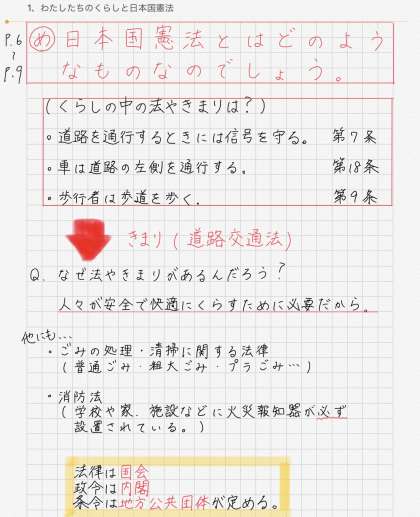 1、わたしたちのくらしと日本国憲法
P.6
〜
P.9
め 日本国憲法とはどのよう
なものなのでしょう。
(くらしの中の法やきまりは?)
・道路を通行するときには信号を守る。 第7条
・車は道路の左側を通行する。 第18条
・歩行者は歩道を歩く. 第9条
きまり(道路交通法)
Q. なぜ法やきまりがあるんだろう?
人々が安全で快適にくらすために必要だから。
他にも...
・ごみの処理・清掃に関する法律
(普通ごみ・粗大ごみ・プラごみ…)
・消防法
(学校や家、施設などに火災報知器が必ず
設置されている。)
法律は国会
政令は内閣
条令は地方公共団体が定める。